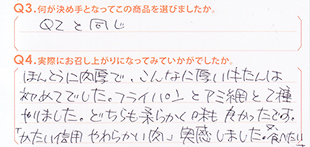 Q3.何が決め手となってこの商品を選びましたか。
Q2と同じ
Q4.実際にお召し上がりになってみていかがでしたか。
ほんとうに肉厚で、こんなに厚い牛たんは
初めてでした。フライパンとアミ網と2種
やりました。どちらも柔らかく味も良かったです。
「かたい信用 やわらかい肉」実感しました。食べたい